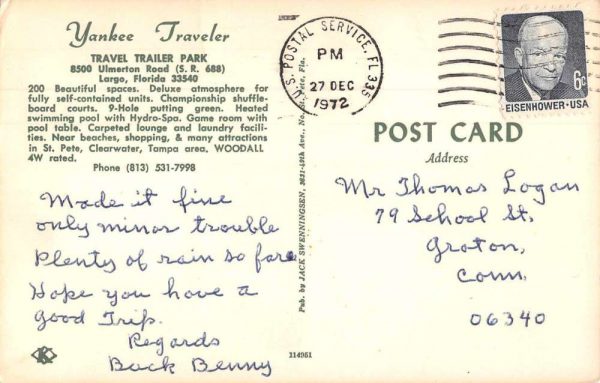 Yankee Traveler
TRAVEL TRAILER PARK
8500 Ulmerton Road (S. R. 688)
Largo, Florida 33540
200 Beautiful spaces. Deluxe atmosphere for
fully self-contained units. Championship shuffle-
board courts. 9-Hole putting green. Heated
swimming pool with Hydro-Spa. Game room with
pool table. Carpeted lounge and laundry facili-
ties. Near beaches, shopping, & many attractions
in St. Pete, Clearwater, Tampa area. WOODALL
4W rated.
Phone (813) 531-7998
Made it fine
only minor trouble
Plenty of rain so fare
Hope you have a
good Trip.
Regards
Buck Benny
K
Pub. by JACK SWENNINGSEN, 3631-49th Ave., No. St. Pete, Fla.
114951
U.S. POSTAL SERVICE, FL 335
PM
27 DEC
1972
6¢
EISENHOWER·USA
POST CARD
Address
Mr Thomas Logan
79 School St.
Groton,
Conn.
06340